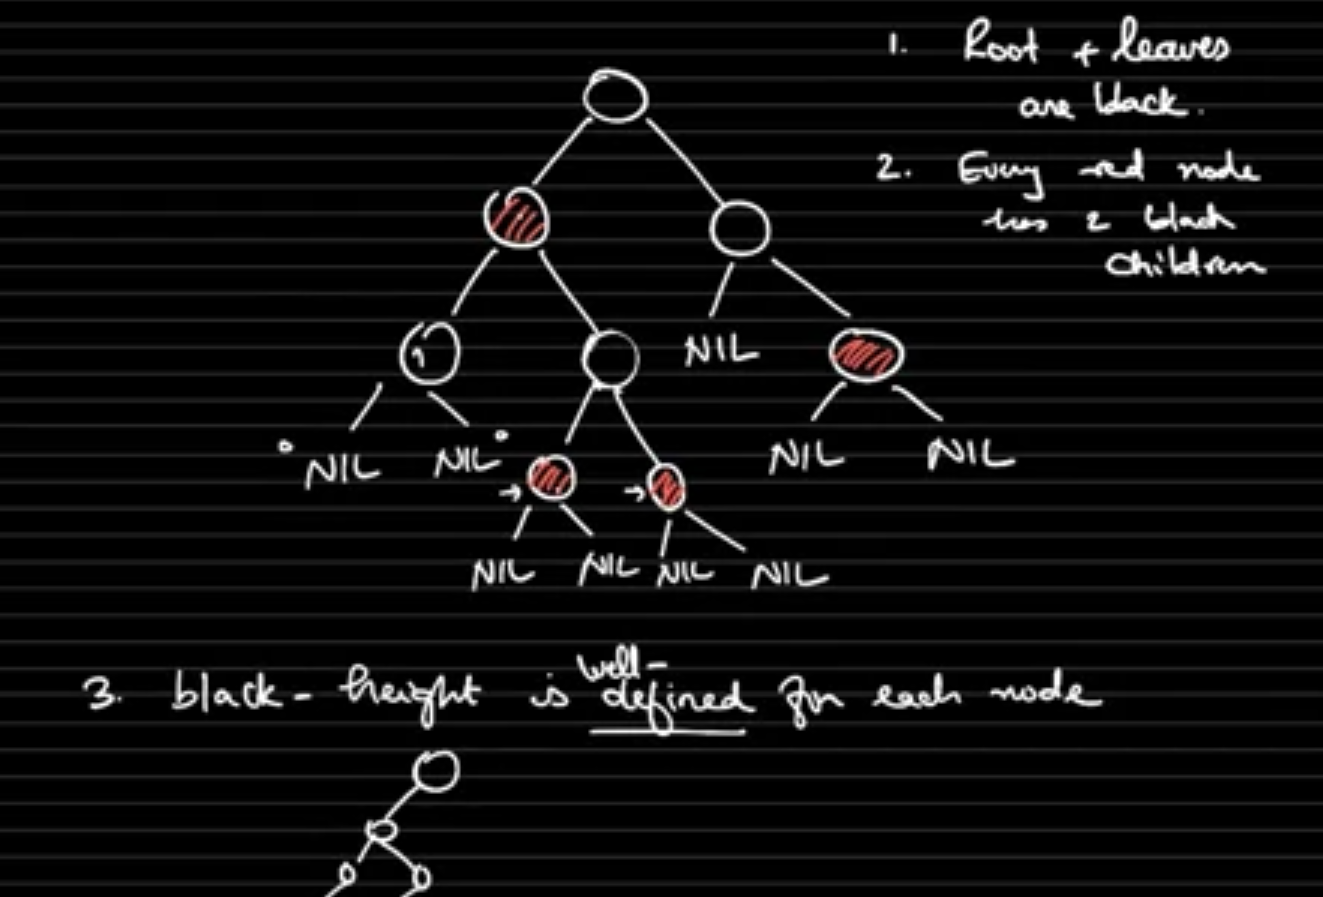 1. Root + leaves
are black.
2. Every red node
has 2 black
children
NIL
NIL NIL NIL NIL
NIL NIL NIL NIL
well-
3. black-height is defined for each node